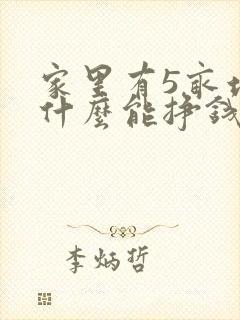 家里有5亩地
什麼能挣钱
李炳哲